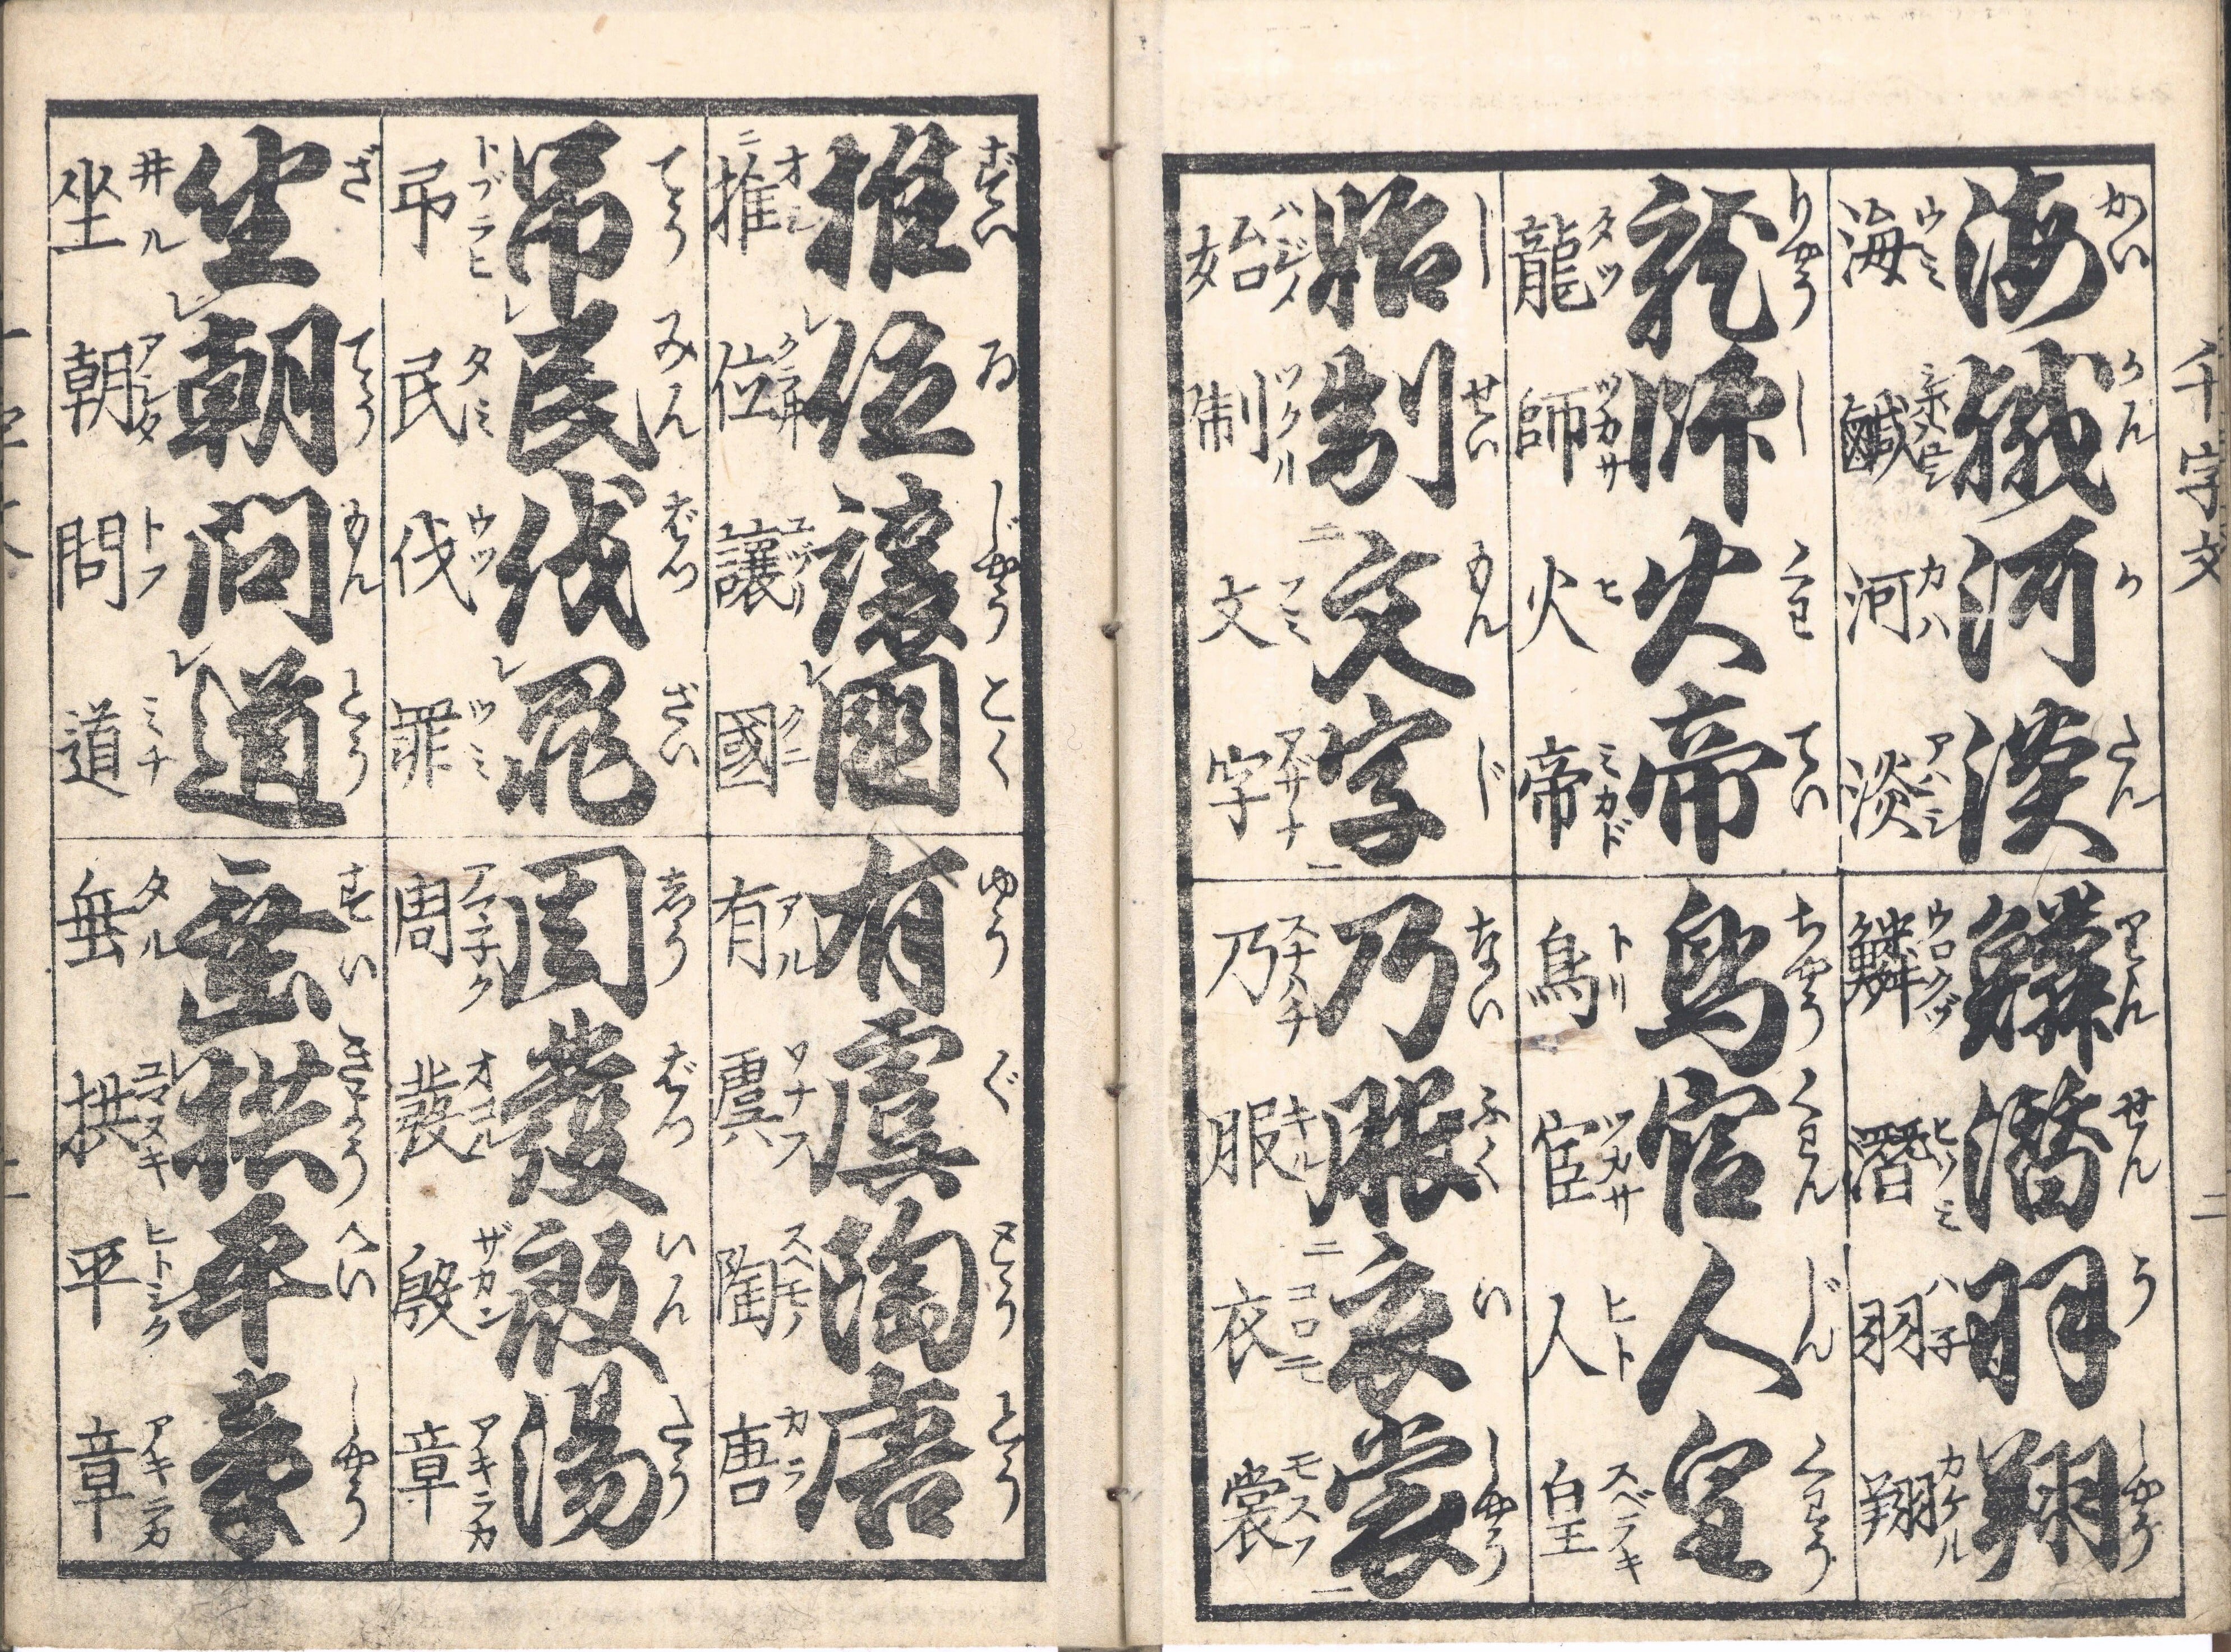 千字文
二
かい かん か たん
海鹹河淡
ウミ カハ アハシ
海鹹河淡
りん せん う しやう
鱗潜羽翔
ウロクヅ ヒソミ ハ子 カケル
鱗潛羽翔
りやう し くわ てい
龍師火帝
タツ ツカサ ヒ ミカド
龍師火帝
ちやう くわん じん くわう
鳥官人皇
トリ ツカサ ヒト スベラキ
鳥官人皇
し せい もん じ
始制文字
ハジメ ツクル フミ アザナ
始制文字
ない ふく い しやう
乃服衣裳
スナハチ キル コロモ モスソ
乃服衣裳
すい ゐ じやう こく
推位譲國
オシ クラ井 ユヅル クニ
推位讓國
ゆう ぐ とう とう
有虞陶唐
アル スヘモノ カラ
有虞陶唐
てう みん ばつ ざい
吊民伐罪
トブラヒ タミ ウツ ツミ
弔民伐罪
しう はつ いん たう
周發殷湯
アマ子ク オコル ザカン アキラカ
周發殷章
ざ てう もん とう
坐朝問道
井ル アシタ トフ ミチ
坐朝問道
すい きよう へい しやう
垂拱平章
タル コマヌキ ヒトシク アキラカ
垂拱平章